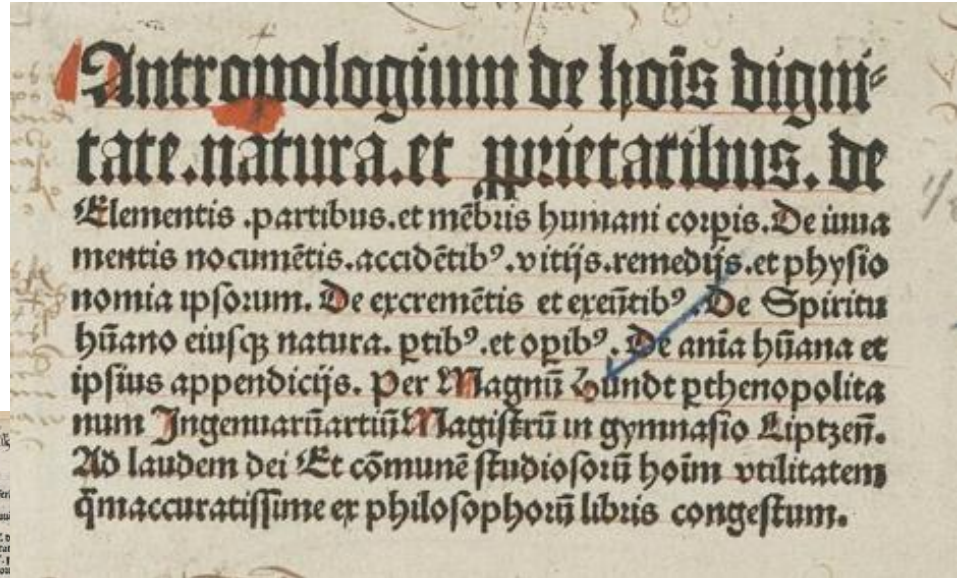 Antropologium de hoīs digni⸗
tate.natura.et ꝓprietatibus. de
Elementis .partibus.et mēbris humani corꝑis. De iuua
mentis nocumētis.accidētibꝰ.vitijs.remedijs.et physio
nomia ipsorum. De excremētis et exeūtibꝰ .De Spiritu
hūano eiusqꝫ natura. ꝑtibꝰ.et oꝑibꝰ. De anīa hūana et
ipsius appendicijs. Per Magnū hundt ꝑthenopolita
num Ingenuarūartiū Magistrū in gymnasio Liptzeñ.
Ad laudem dei Et cōmunē studiosorū hoīm vtilitatem
q̄maccuratissime ex philosophorū libris congestum.